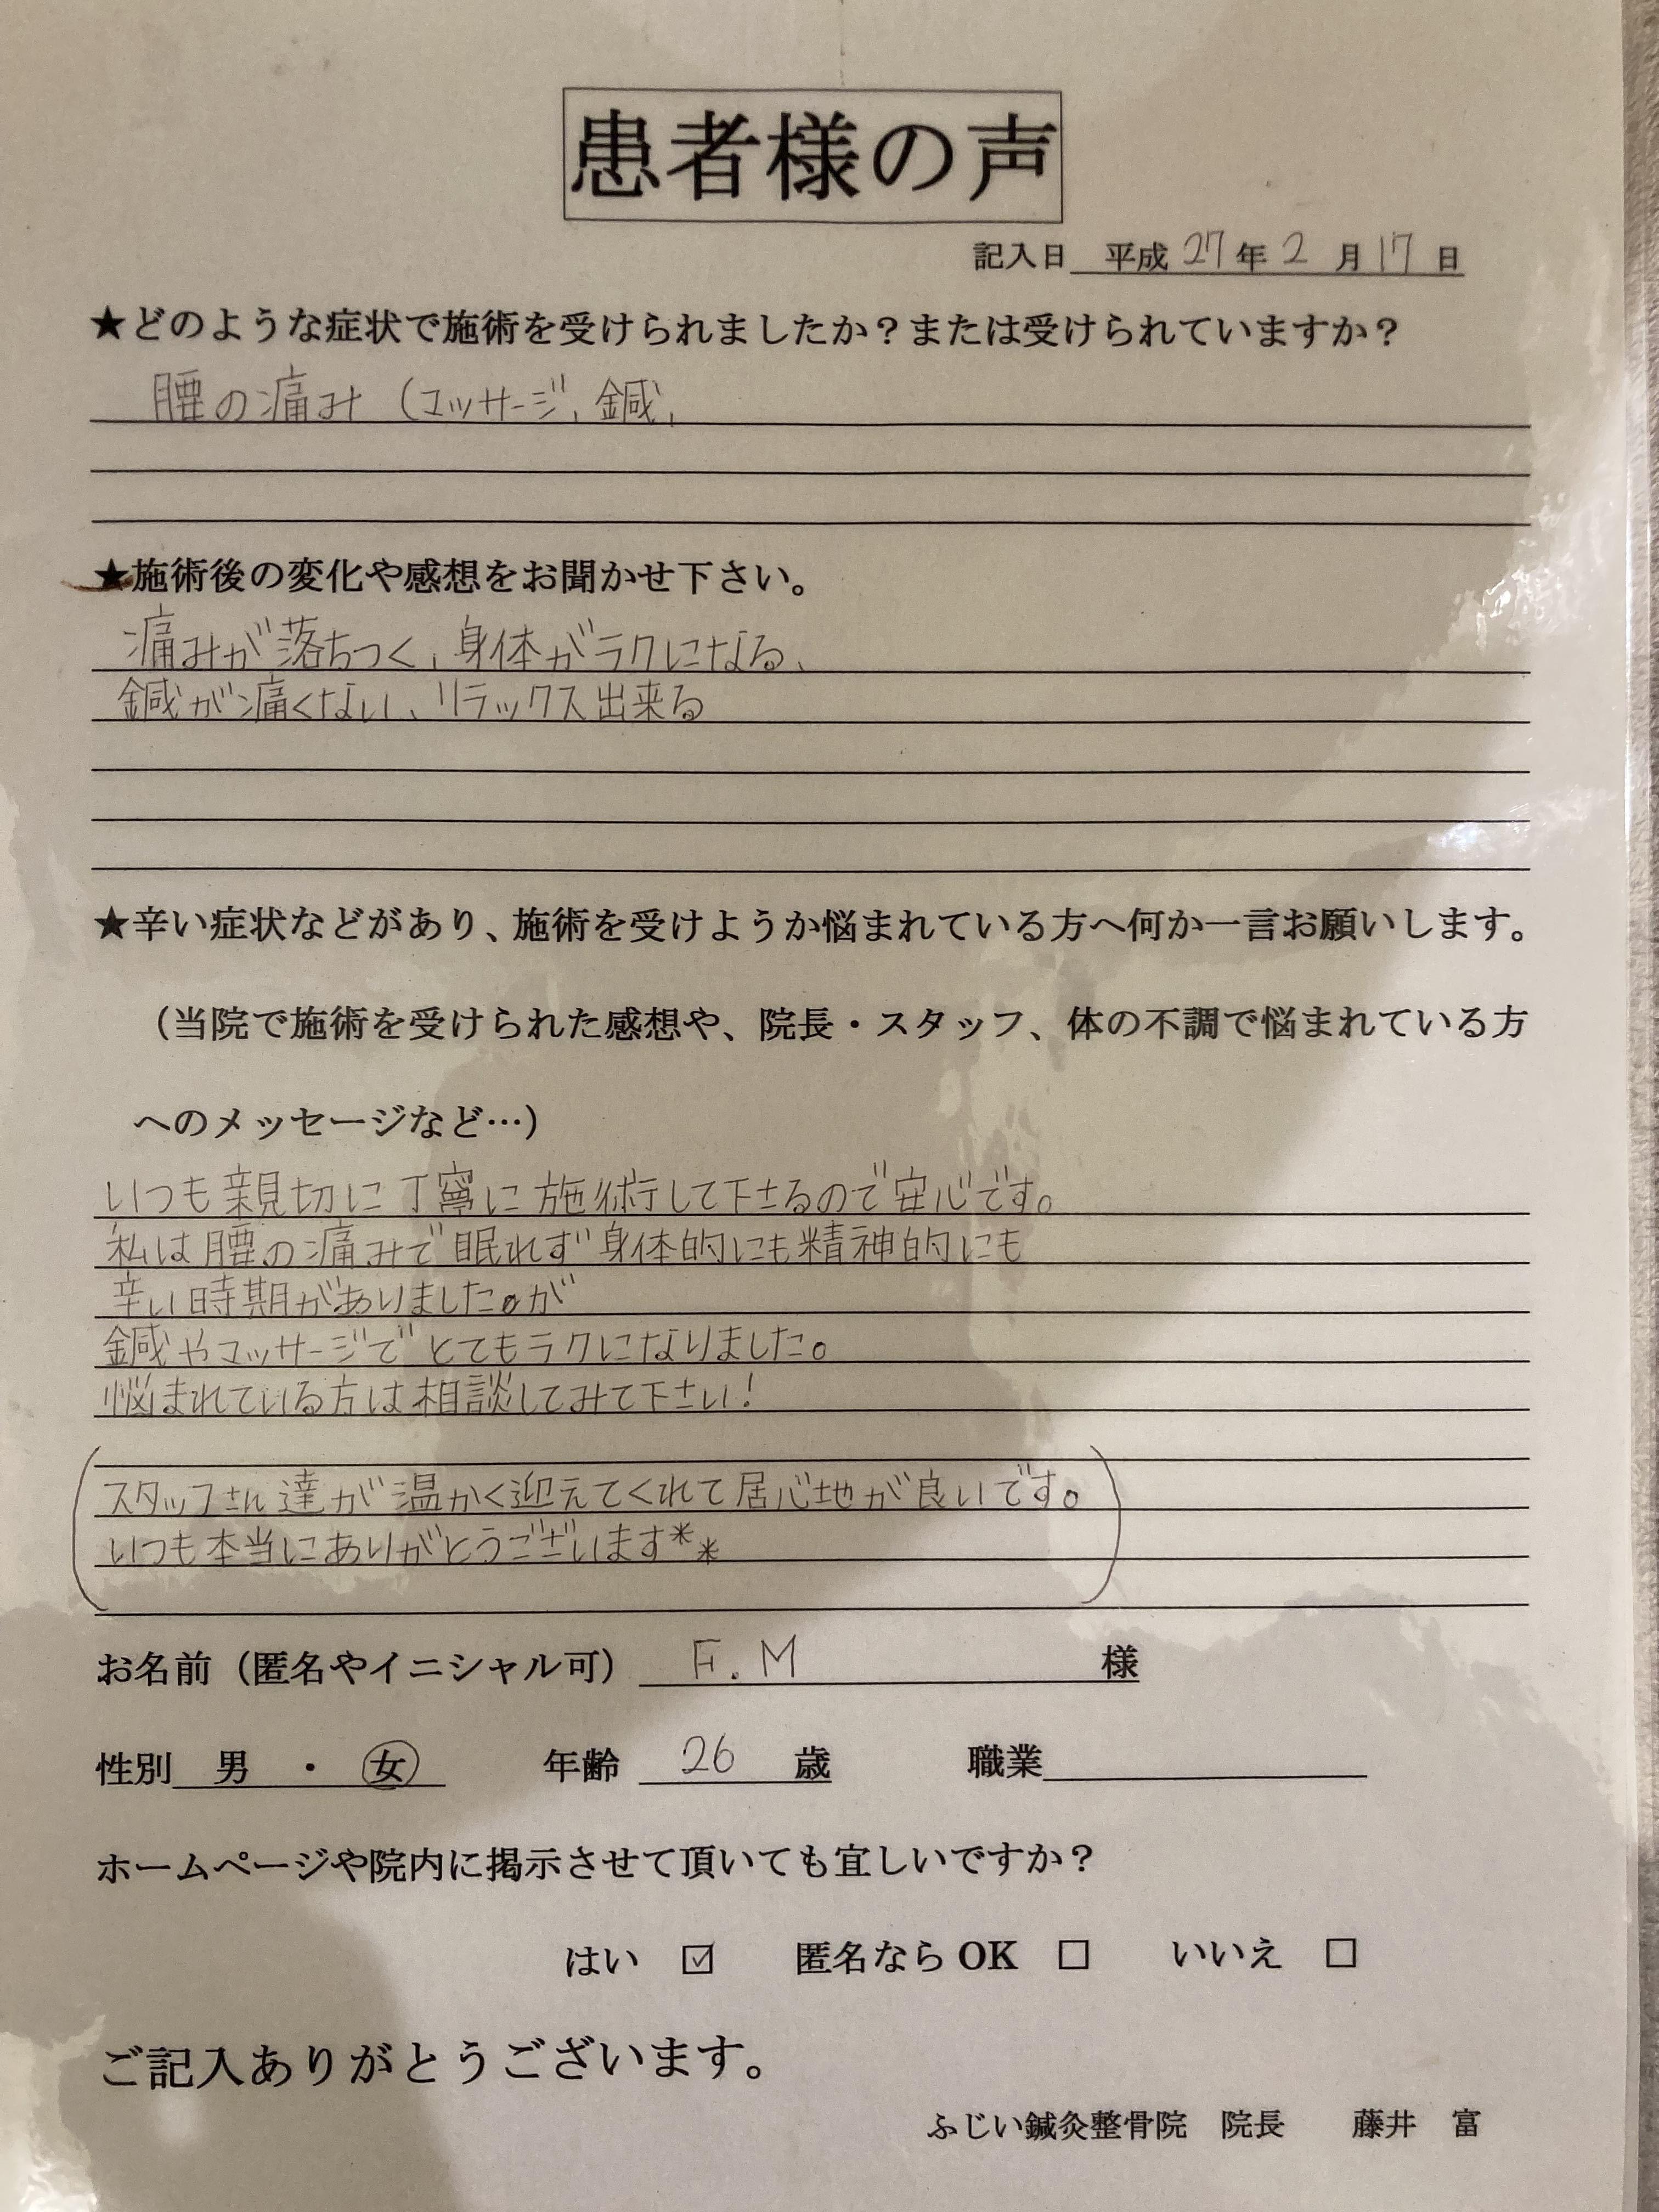 患者様の声
記入日 平成27年2月17日
★どのような症状で施術を受けられましたか？または受けられていますか？
腰の痛み（マッサージ、鍼、
★施術後の変化や感想をお聞かせ下さい。
痛みが落ちつく、身体がラクになる、
鍼が痛くない、リラックス出来る
★辛い症状などがあり、施術を受けようか悩まれている方へ何か一言お願いします。
（当院で施術を受けられた感想や、院長・スタッフ、体の不調で悩まれている方
へのメッセージなど…）
いつも親切に丁寧に施術して下さるので安心です。
私は腰の痛みで眠れず身体的にも精神的にも
辛い時期がありました。が
鍼やマッサージでとてもラクになりました。
悩まれている方は相談してみて下さい！
（スタッフさん達が温かく迎えてくれて居心地が良いです。
いつも本当にありがとうございます**）
お名前（匿名やイニシャル可） F.M 様
性別 男 ・ 女 年齢 26 歳 職業
ホームページや院内に掲示させて頂いても宜しいですか？
はい ☑ 匿名なら OK □ いいえ □
ご記入ありがとうございます。
ふじい鍼灸整骨院 院長 藤井 富